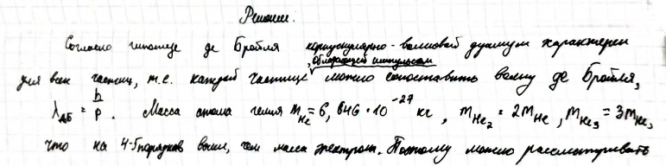 Решение.
Согласно гипотезе де Бройля корпускулярно-волновой дуализм характерен
обладающей импульсом
для всех частиц, т.е. каждой частице можно сопоставить волну де Бройля,
λ_дБ = h/p. Масса атома гелия m_He = 6,646·10^-27 кг, m_He₂ = 2m_He, m_He₃ = 3m_He,
что на 4-5 порядков выше, чем масса электрона. Поэтому можно рассматривать